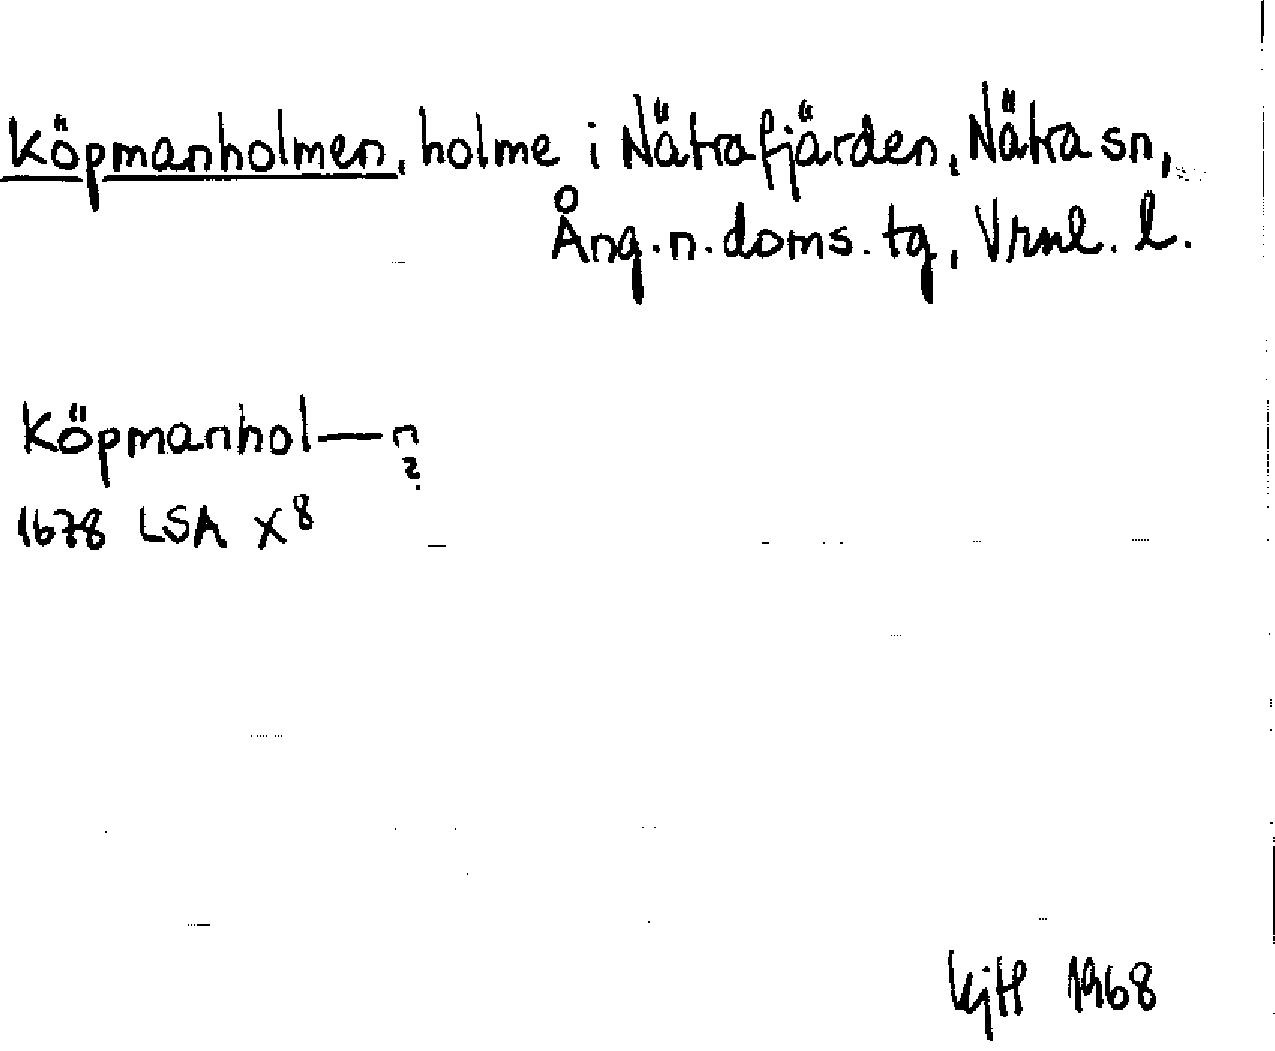 Köpmanholmen, holme i Nätrafjärden, Nätra sn,
Ång. n. doms. tg, Vrnl. l.
Köpmanhol—n
?
1678 LSA X⁸
KjH 1968